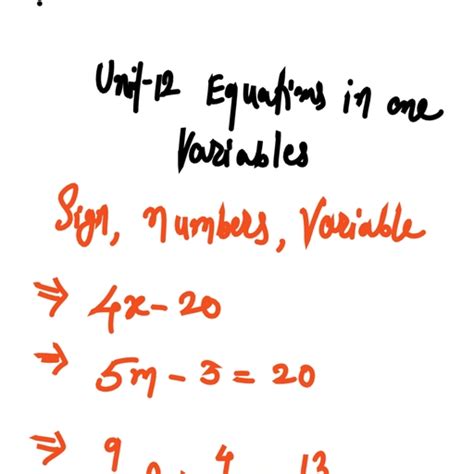 Unit-12 Equations in one
Variables
Sign, numbers, Variable
⇒ 4x - 20
⇒ 5m - 3 = 20
⇒ 9 4 13